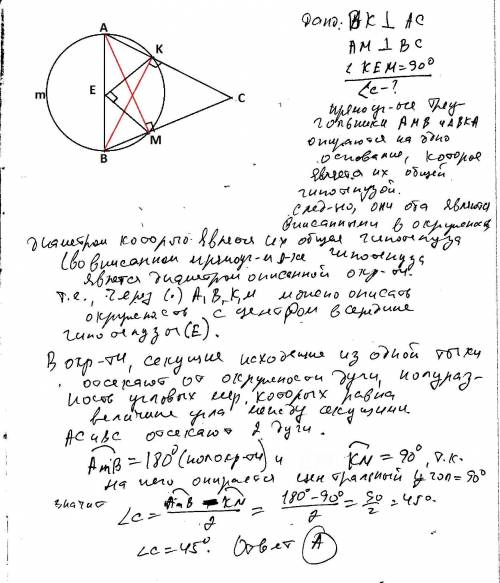 Дано: BK ⊥ AC
AM ⊥ BC
∠KEM=90°
∠C-?
A
K
m
E
C
M
B
Прямоуг-ые треу-
гольники AMB и ABKA
опираются на одно
основание, которое
является их общей
гипотенузой.
След-но, они оба являются
вписанными в окружность
диаметром которого является их общая гипотенуза
(во вписанном прямоуг-м тр-ке гипотенуза
является диаметром описанной окр-ти.
т.е., через (·) A, B, K, M можно описать
окружность с центром в середине
гипотенузы (E).
В окр-ти, секущие исходящие из одной точки
отсекают от окружности дуги, полураз-
ность угловых мер, которых равна
величине угла между секущими
AC и BC отсекают 2 дуги.
AmB = 180° (полокр-ти) и KN = 90°, т.к.
на него опирается центральный угол = 90°
значит
∠C = AmB - KN / 2 = 180° - 90° / 2 = 90 / 2 = 45°
∠C = 45°. Ответ A